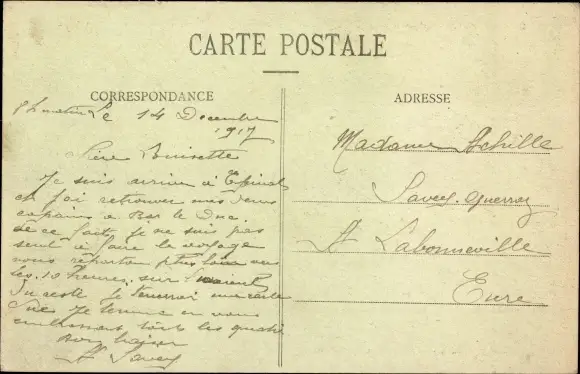 CARTE POSTALE
CORRESPONDANCE
ADRESSE
Le 14 Decembre
1917
Je suis arriver à Epinal
et j'ai retrouver mes deux
copains a Bar le Duc.
de ce fait, je ne suis pas
seul à faire le voyage
nous repartons plus loin
10 heures
Du reste je une carte
Je termine en vous
embrassant tous les quatre
Bon baiser
A Savey
Madame Achille
Savey
A Labonneville
Eure